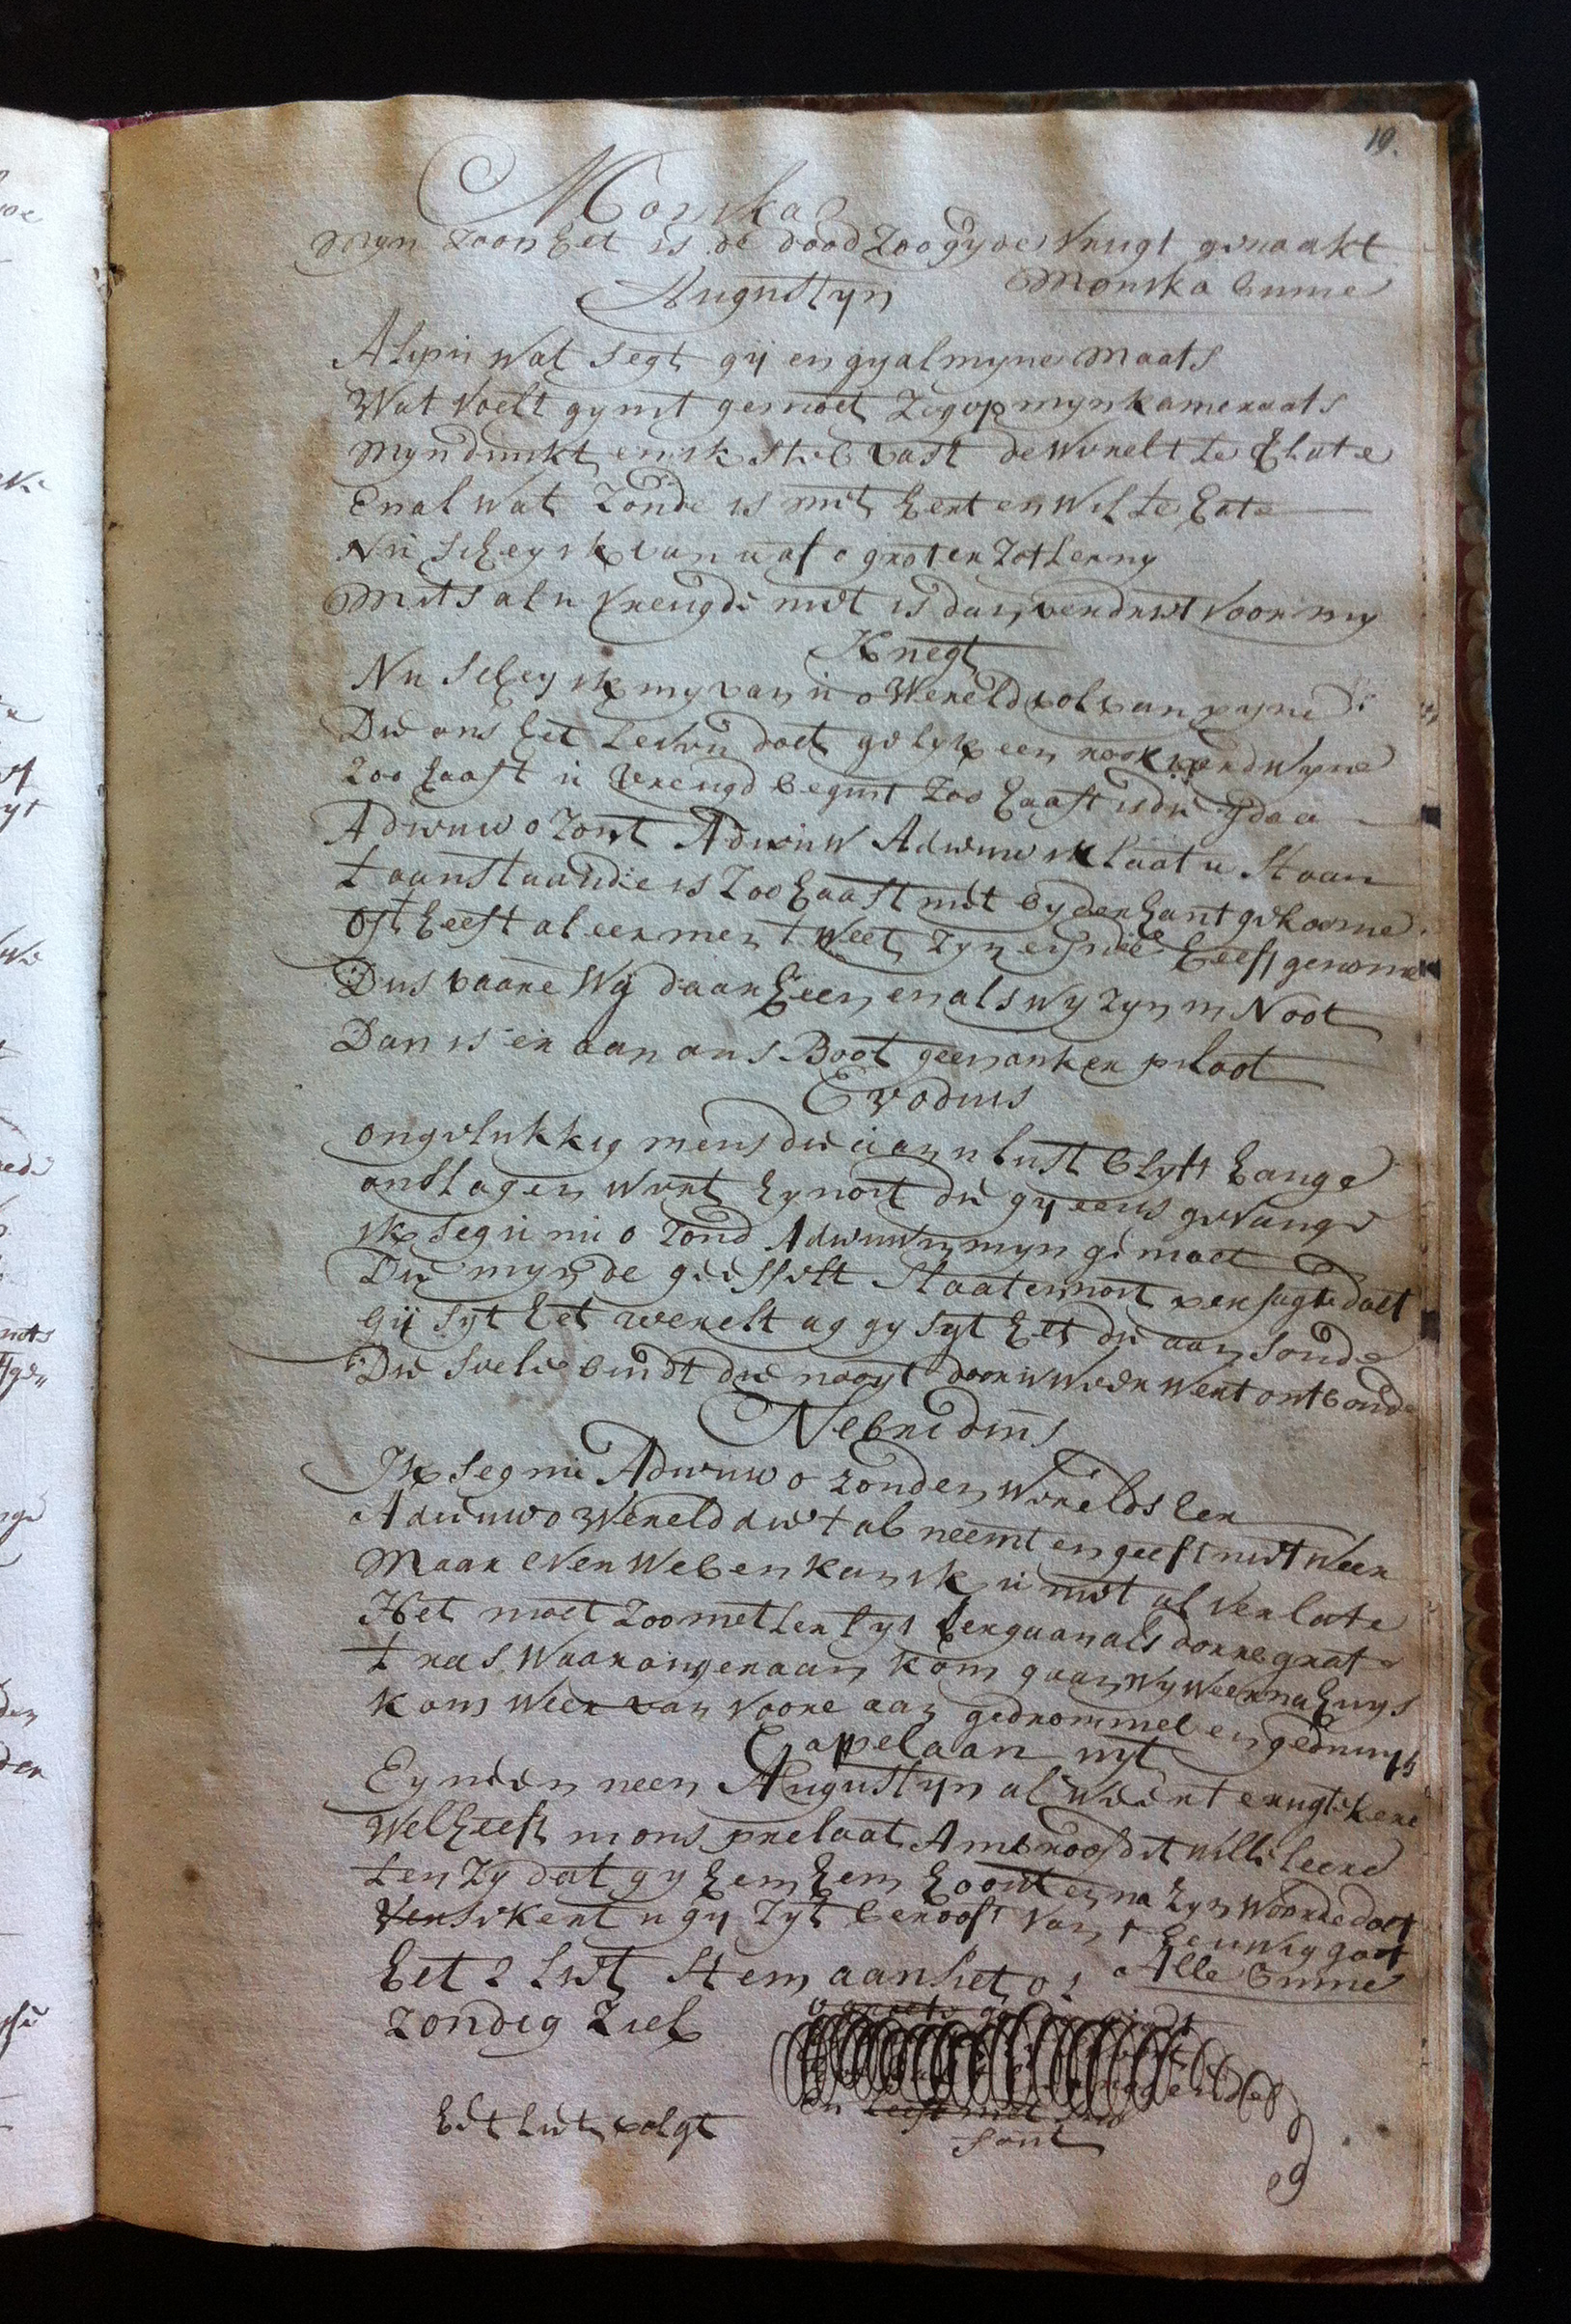 19.
Monika
Mijn zoon het is de dood zoo gy de vrugt genaakt
Monika binne
Augustyn
Alipii wat segt gy en gy al myne maats
Wat voelt gy int gemoet zegop myn kameraats
Myn dunkt en ik stel vast de werelt te hlate
En al wat zonde is mit hert en wil te hate
Nu schey ik van u af o groten zotterny
Mits al u vreugde niet is dan verdriet voor my
Knegt
Nu schey ik my van u o Wereld vol van pyne
Die ons het leven doet gelyk een rook verdwyne
Zoo haast u vreugd begint zoo haast is die gdaa
Adwuw o zont Adwuw Adwuw ik laat u staan
t aanstaande is zoo haast niet by der hant gekome
Oft heeft al eer men t weet zyn eynde heeft genome
Dus vaare wy daar heen en als wy zyn in Noot
Dan is er aan ons Boot geen anker piloot
Evodius
Ongelukkig mens die aan u lust blyft hange
ontslagen wort hy noit die gy eens gevange
ik seg u nu o zond Adwuw myn gemoet
Die myn de geest stelt staat en noit versugte doet
Gij syt het werelt ag gy syt het die aan sonde
Die siele bindt die nooyt door u weer wert ontbonde
Nebridius
Ik seg nu Adwuw o zonden werelds eer
Adwuw o Wereld die t al neemt en geeft niet weer
Maar even wel en kan ik u niet al verlate
Het moet zoo metter tyt vergaan als dorre grate
t ras waar ongeraan kom gaan wy weer na huys
Kom weer van voore aan gedrommel en gedruys
Capelaan uyt
Ey neen neen Augustyn al weer t erugtekere
Wel heeft in ons prelaat Ambroos dit wille leere
ten zy dat gy hem hem hoort en na zyn woorde doet
Versekert u gy zyt berooft van t eeuwig goet
Alle binne
het 2 liet stem aansiet o 1
zondig ziel
en leeft met
sont
het liet volgt